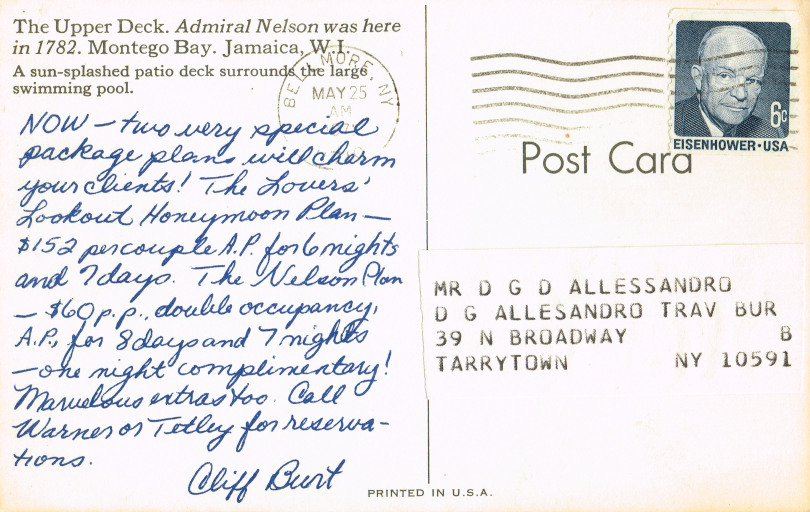 The Upper Deck. Admiral Nelson was here
in 1782. Montego Bay. Jamaica, W.I.
A sun-splashed patio deck surrounds the large
swimming pool.
BELLMORE, NY
MAY 25
AM
NOW — two very special
package plans will charm
your clients! The Lovers'
Lookout Honeymoon Plan —
$152 per couple A.P. for 6 nights
and 7 days. The Nelson Plan
— $60 p.p., double occupancy,
A.P., for 8 days and 7 nights
— one night complimentary!
Marvelous extras too. Call
Warner or Tetley for reserva-
tions.
Cliff Burt
6c
EISENHOWER·USA
Post Card
MR D G D ALLESSANDRO
D G ALLESANDRO TRAV BUR
39 N BROADWAY B
TARRYTOWN NY 10591
PRINTED IN U.S.A.